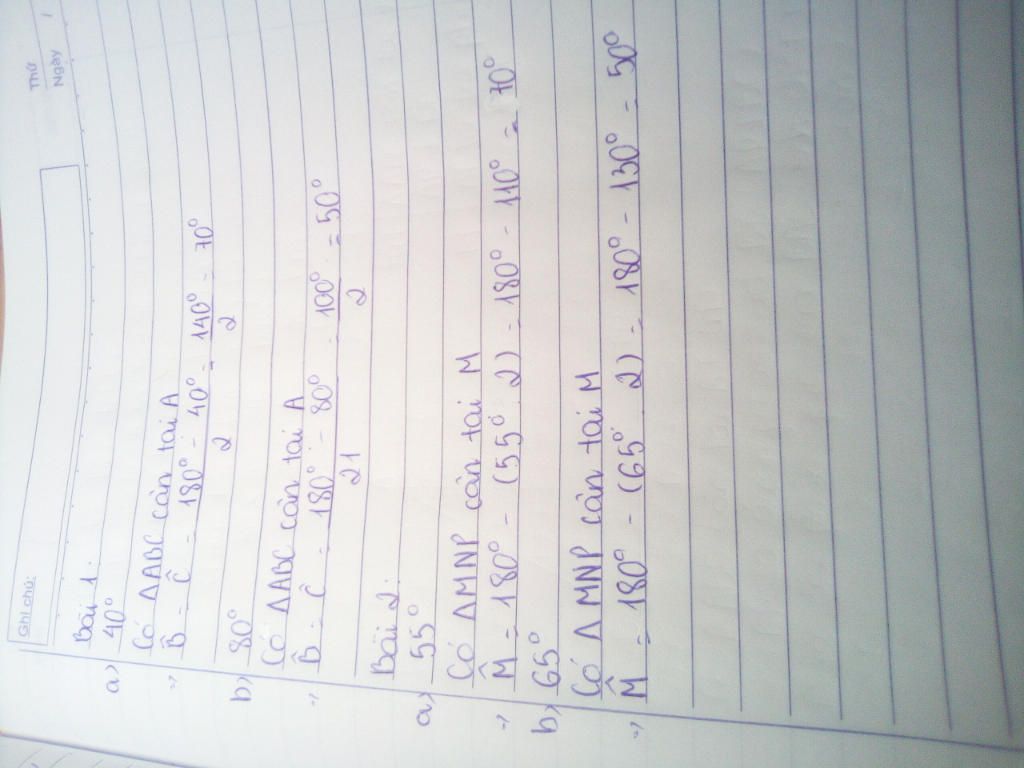 Ghi chú:
Thứ
Ngày
Bài 1:
a) 40°
Có ΔABC cân tại A
=> B̂ = Ĉ = (180° - 40°)/2 = 140°/2 = 70°
b) 80°
Có ΔABC cân tại A
=> B̂ = Ĉ = (180° - 80°)/21 = 100°/2 = 50°
Bài 2:
a) 55°
Có ΔMNP cân tại M
=> M̂ = 180° - (55° . 2) = 180° - 110° = 70°
b) 65°
Có ΔMNP cân tại M
=> M̂ = 180° - (65° . 2) = 180° - 130° = 50°